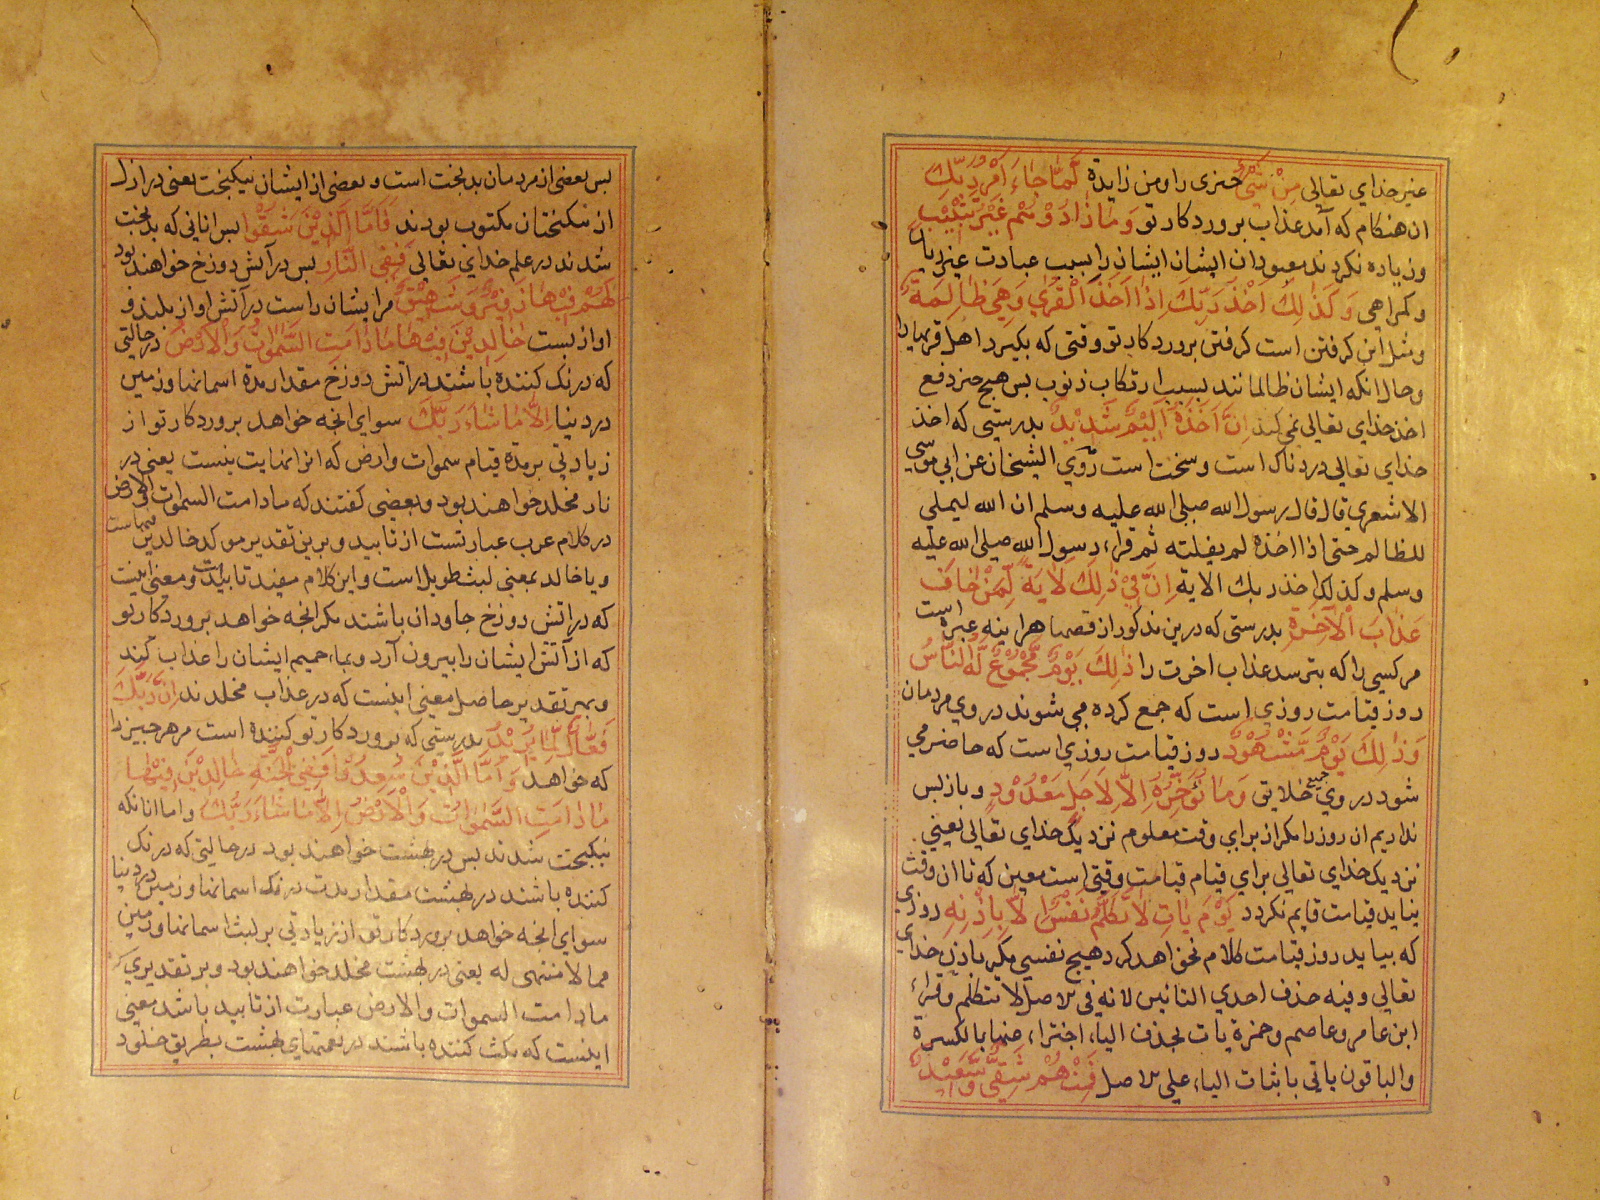 غیر خدای تعالی مِنْ شَیْءٍ چیزی را و من زایدة لَمَّا جَاءَ اَمْرُ رَبِّكَ
ان هنکام که آمد عذاب بروردکار تو وَمَا زَادُوْهُمْ غَيْرَ تَتْبِيْبٍ
وزیاده نکردند معبودان ایشان ایشان را بسبب عبادت غیر
وکمراهی وَكَذٰلِكَ اَخْذُ رَبِّكَ اِذَا اَخَذَ الْقُرٰي وَهِيَ ظَالِمَةٌ
ومثل این کرفتن است کرفتن بروردکار تو وقتی که بکیرد اهل قریها را
وحال انکه ایشان ظالمانند بسبب ارتکاب ذنوب بس هیج جیز دفع
اخذ خدای تعالی نمی کند اِنَّ اَخْذَهٗ اَلِيْمٌ شَدِيْدٌ بدرستی که اخذ
خدای تعالی دردناک است وسخت است روي الشیخان عن ابی موسي
الاشعري قال قال رسول الله صلی الله علیه وسلم ان الله لیملي
للظالم حتی اذا اخذه لم یفلته ثم قراء رسول الله صلی الله علیه
وسلم وکذلك اخذ ربك الایة اِنَّ فِيْ ذٰلِكَ لَاٰيَةً لِّمَنْ خَافَ
عَذَابَ الْاٰخِرَةِ بدرستی که درین مذکور از قصها هراینه عبرة است
مر کسی را که بترسد عذاب اخرت را ذٰلِكَ يَوْمٌ مَّجْمُوْعٌ لَّهُ النَّاسُ
روز قیامت روزي است که جمع کرده می شوند در وي مردمان
وَذٰلِكَ يَوْمٌ مَّشْهُوْدٌ روز قیامت روزي است که حاضر می
شود در وي جمیع خلایق وَمَا نُؤَخِّرُهٗ اِلَّا لِاَجَلٍ مَّعْدُوْدٍ وباز بس
نداریم ان روز را مکر از براي وقت معلوم نزدیک خداي تعالی یعني
نزدیک خداي تعالی براي قیام قیامت وقتی است معین که تا ان وقت
نیاید قیامت قایم نکردد يَوْمَ يَاْتِ لَا تَكَلَّمُ نَفْسٌ اِلَّا بِاِذْنِهٖ روزي
که بیاید روز قیامت کلام نخواهد کرد هیج نفسي مکر باذن خداي
تعالی وفیه حذف احدي التائین لانه في الاصل لا تتکلم وقراء
ابن عامر وعاصم وحمزة یات بحذف الیاء اجتزاء عنها بالکسرة
والباقون یاتی باثبات الیاء علی الاصل فَمِنْهُمْ شَقِيٌّ وَّسَعِيْدٌ
بس بعضی از مردمان بدبخت است وبعضی از ایشان نیکبخت یعنی در ازل
از نیکبختان مکتوب بودند فَاَمَّا الَّذِيْنَ شَقُوْا بس انانی که بدبخت
شدند در علم خداي تعالی فَفِي النَّارِ بس در آتش دوزخ خواهند بود
لَهُمْ فِيْهَا زَفِيْرٌ وَّشَهِيْقٌ مر ایشان راست در آتش اواز بلند و
اواز بست خٰالِدِيْنَ فِيْهَا مَا دَامَتِ السَّمٰوٰتُ وَالْاَرْضُ در حالتی
که درنک کننده باشند در اتش دوزخ مقدار مدة اسمانها وزمین
در دنیا اِلَّا مَا شَاءَ رَبُّكَ سواي انجه خواهد بروردکار تو از
زیادتی بر مدة قیام سموات وارض که انرا نهایت نیست یعنی در
نار مخلد خواهند بود وبعضی کفتند که مادامت السموات والارض
در کلام عرب عبارتست از تابید وبرین تقدیر موکد خالدین
ویا خالد بمعنی لبث طویل است واین کلام مفید تابیدست ومعنی اینست
که در اتش دوزخ جاودان باشند مکر انجه خواهد بروردکار تو
که از آتش ایشان را بیرون آرد وبماء حمیم ایشان را عذاب کند
وبهر تقدیر حاصل معنی اینست که در عذاب مخلدند اِنَّ رَبَّكَ
فَعَّالٌ لِّمَا يُرِيْدُ بدرستی که بروردکار تو کننده است مر هر جیز را
که خواهد وَاَمَّا الَّذِيْنَ سُعِدُوْا فَفِي الْجَنَّةِ خَالِدِيْنَ فِيْهَا
مَا دَامَتِ السَّمٰوَاتُ وَالْاَرْضُ اِلَّا مَا شَاءَ رَبُّكَ واما انانکه
نیکبخت شدند بس در بهشت خواهند بود در حالیتی که درنک
کننده باشند در بهشت مقدار مدت درنک اسمانها وزمین در دنیا
سواي انجه خواهد بروردکار تو از زیادتی بر لبث اسمانها وزمین
مما لا منتهی له یعنی در بهشت مخلد خواهند بود وبر تقدیري که
مادامت السموات والارض عبارت از تابید باشد معنی
اینست که مکث کننده باشند در نعمتهاي بهشت بطریق خلود